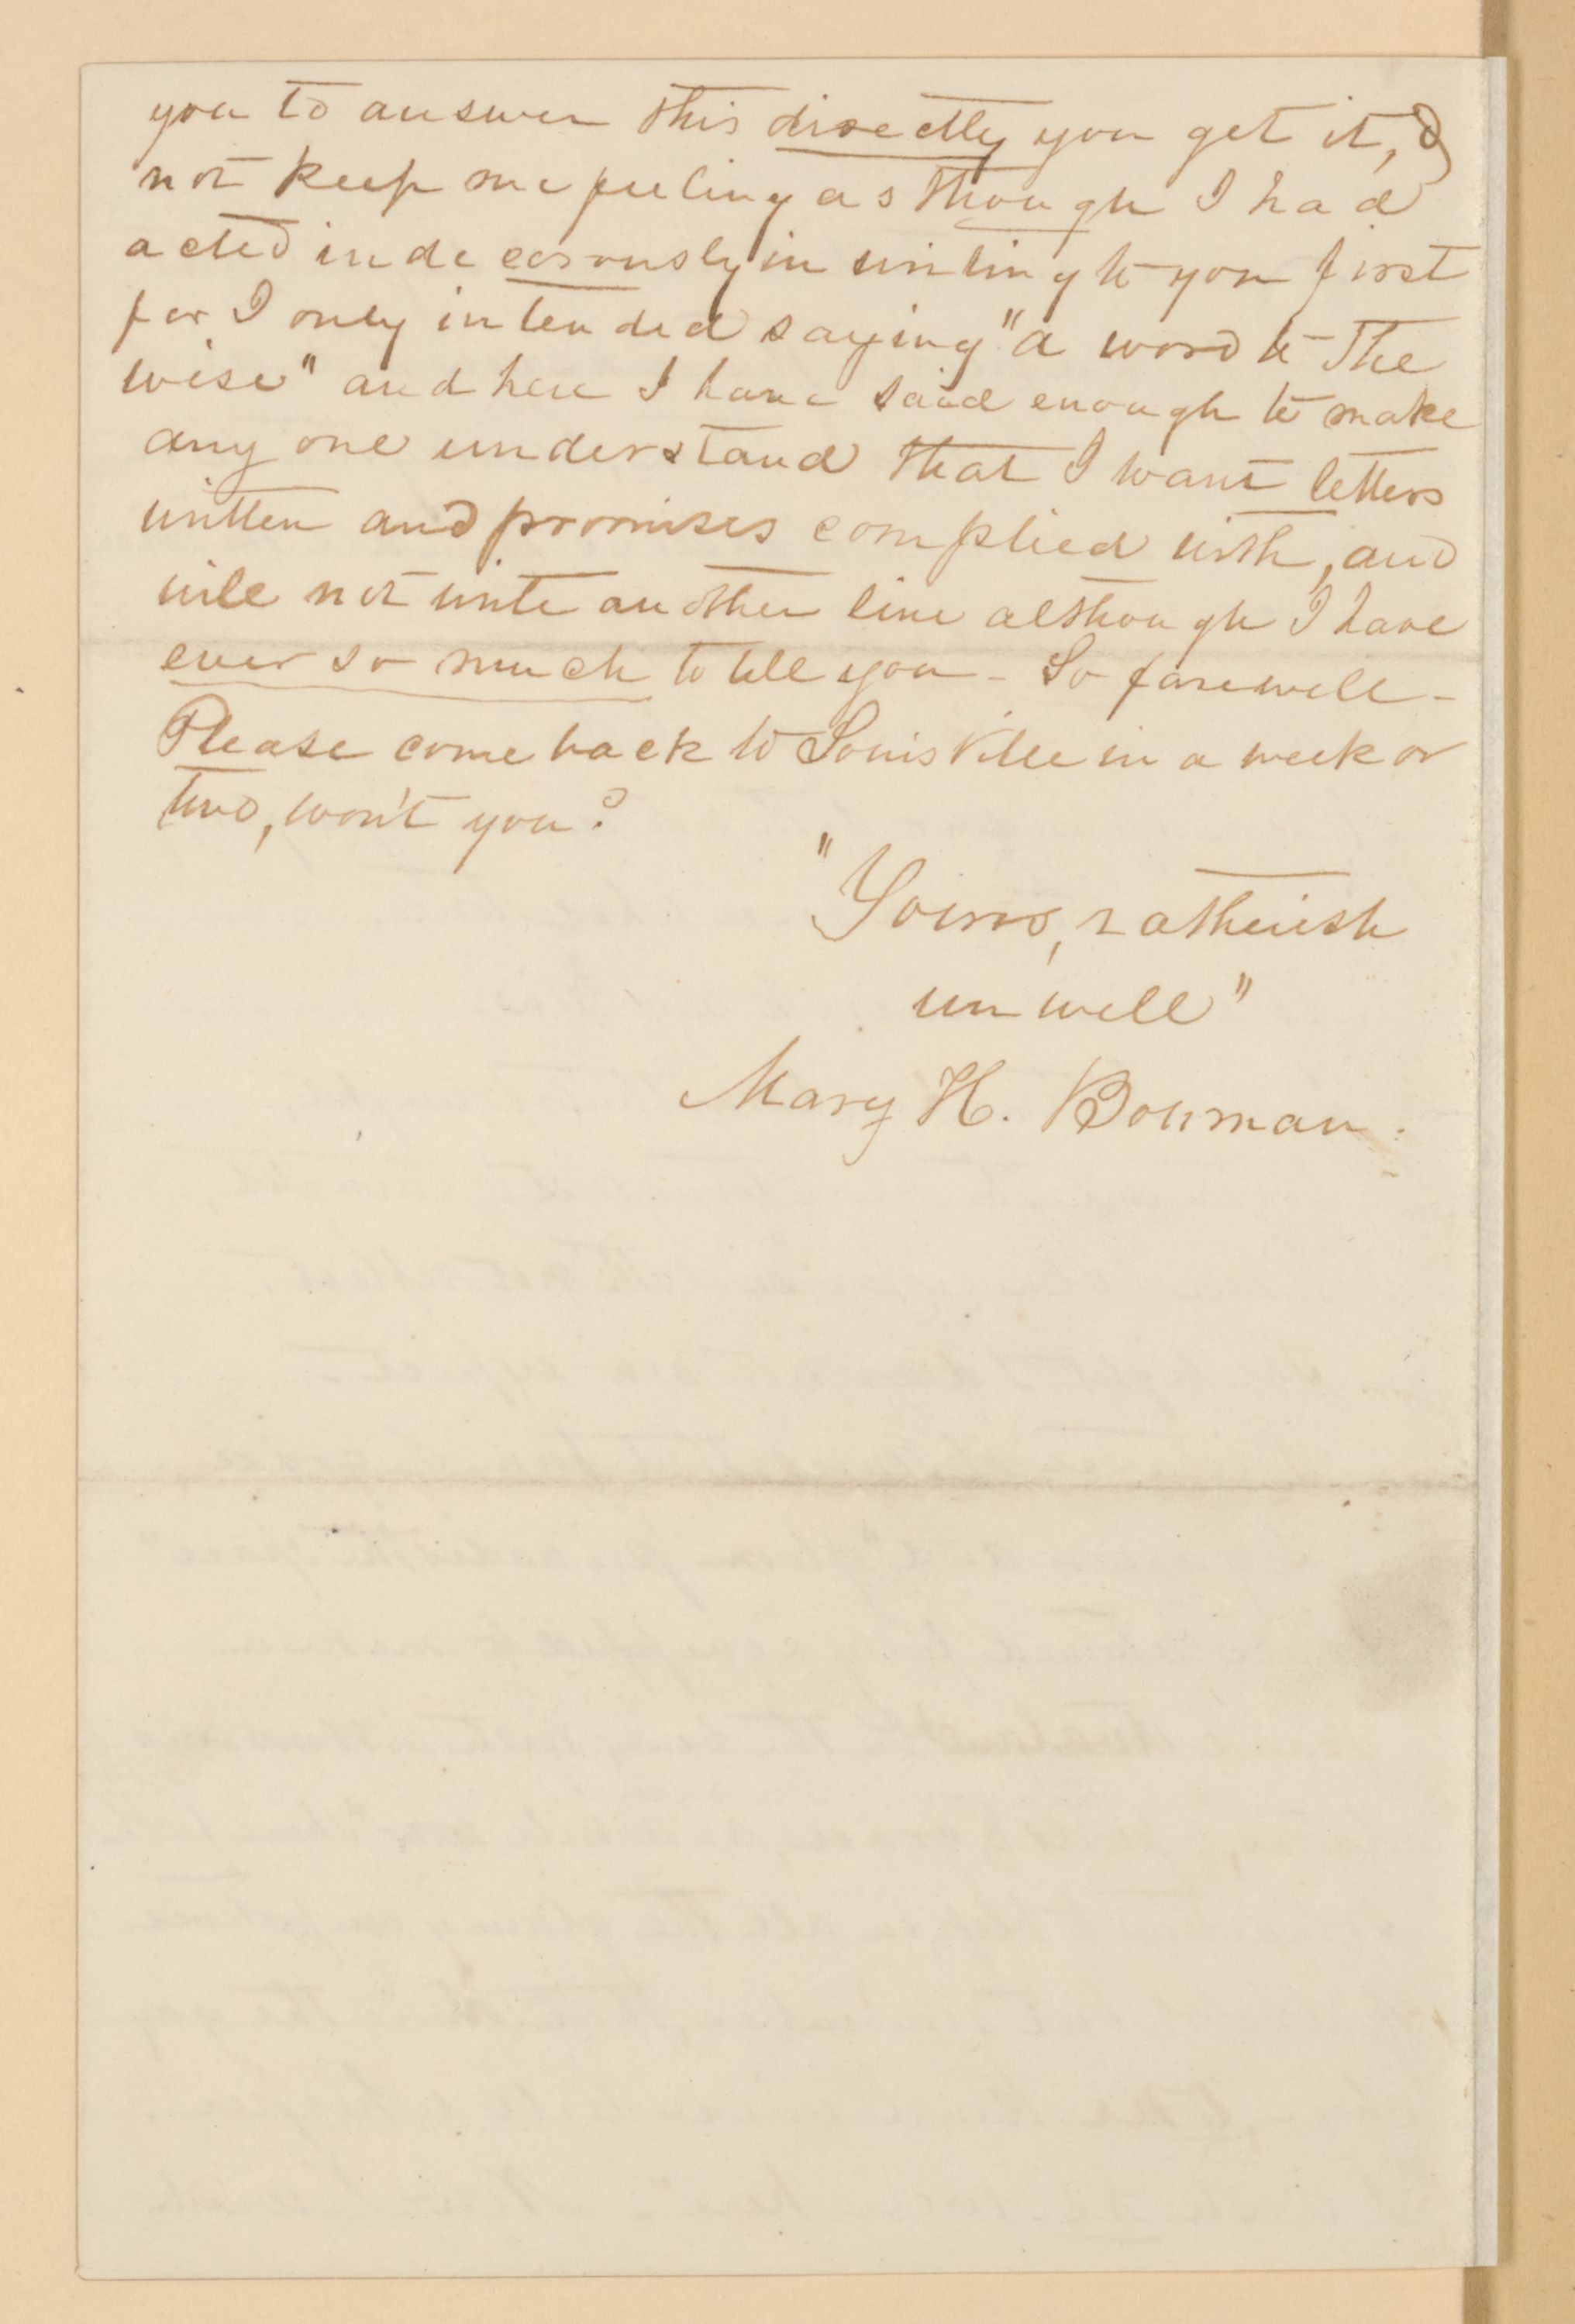 you to answer this directly you get it, &
not keep me feeling as though I had
acted indecorously in writing to you first
for I only intended saying "a word to the
wise" and here I have said enough to make
any one understand that I want letters
written and promises complied with, and
will not write another line although I have
ever so much to tell you - So farewell -
Please come back to Louisville in a week or
two, won't you?
"Yours, ratherish
unwell"
Mary H. Bowman.